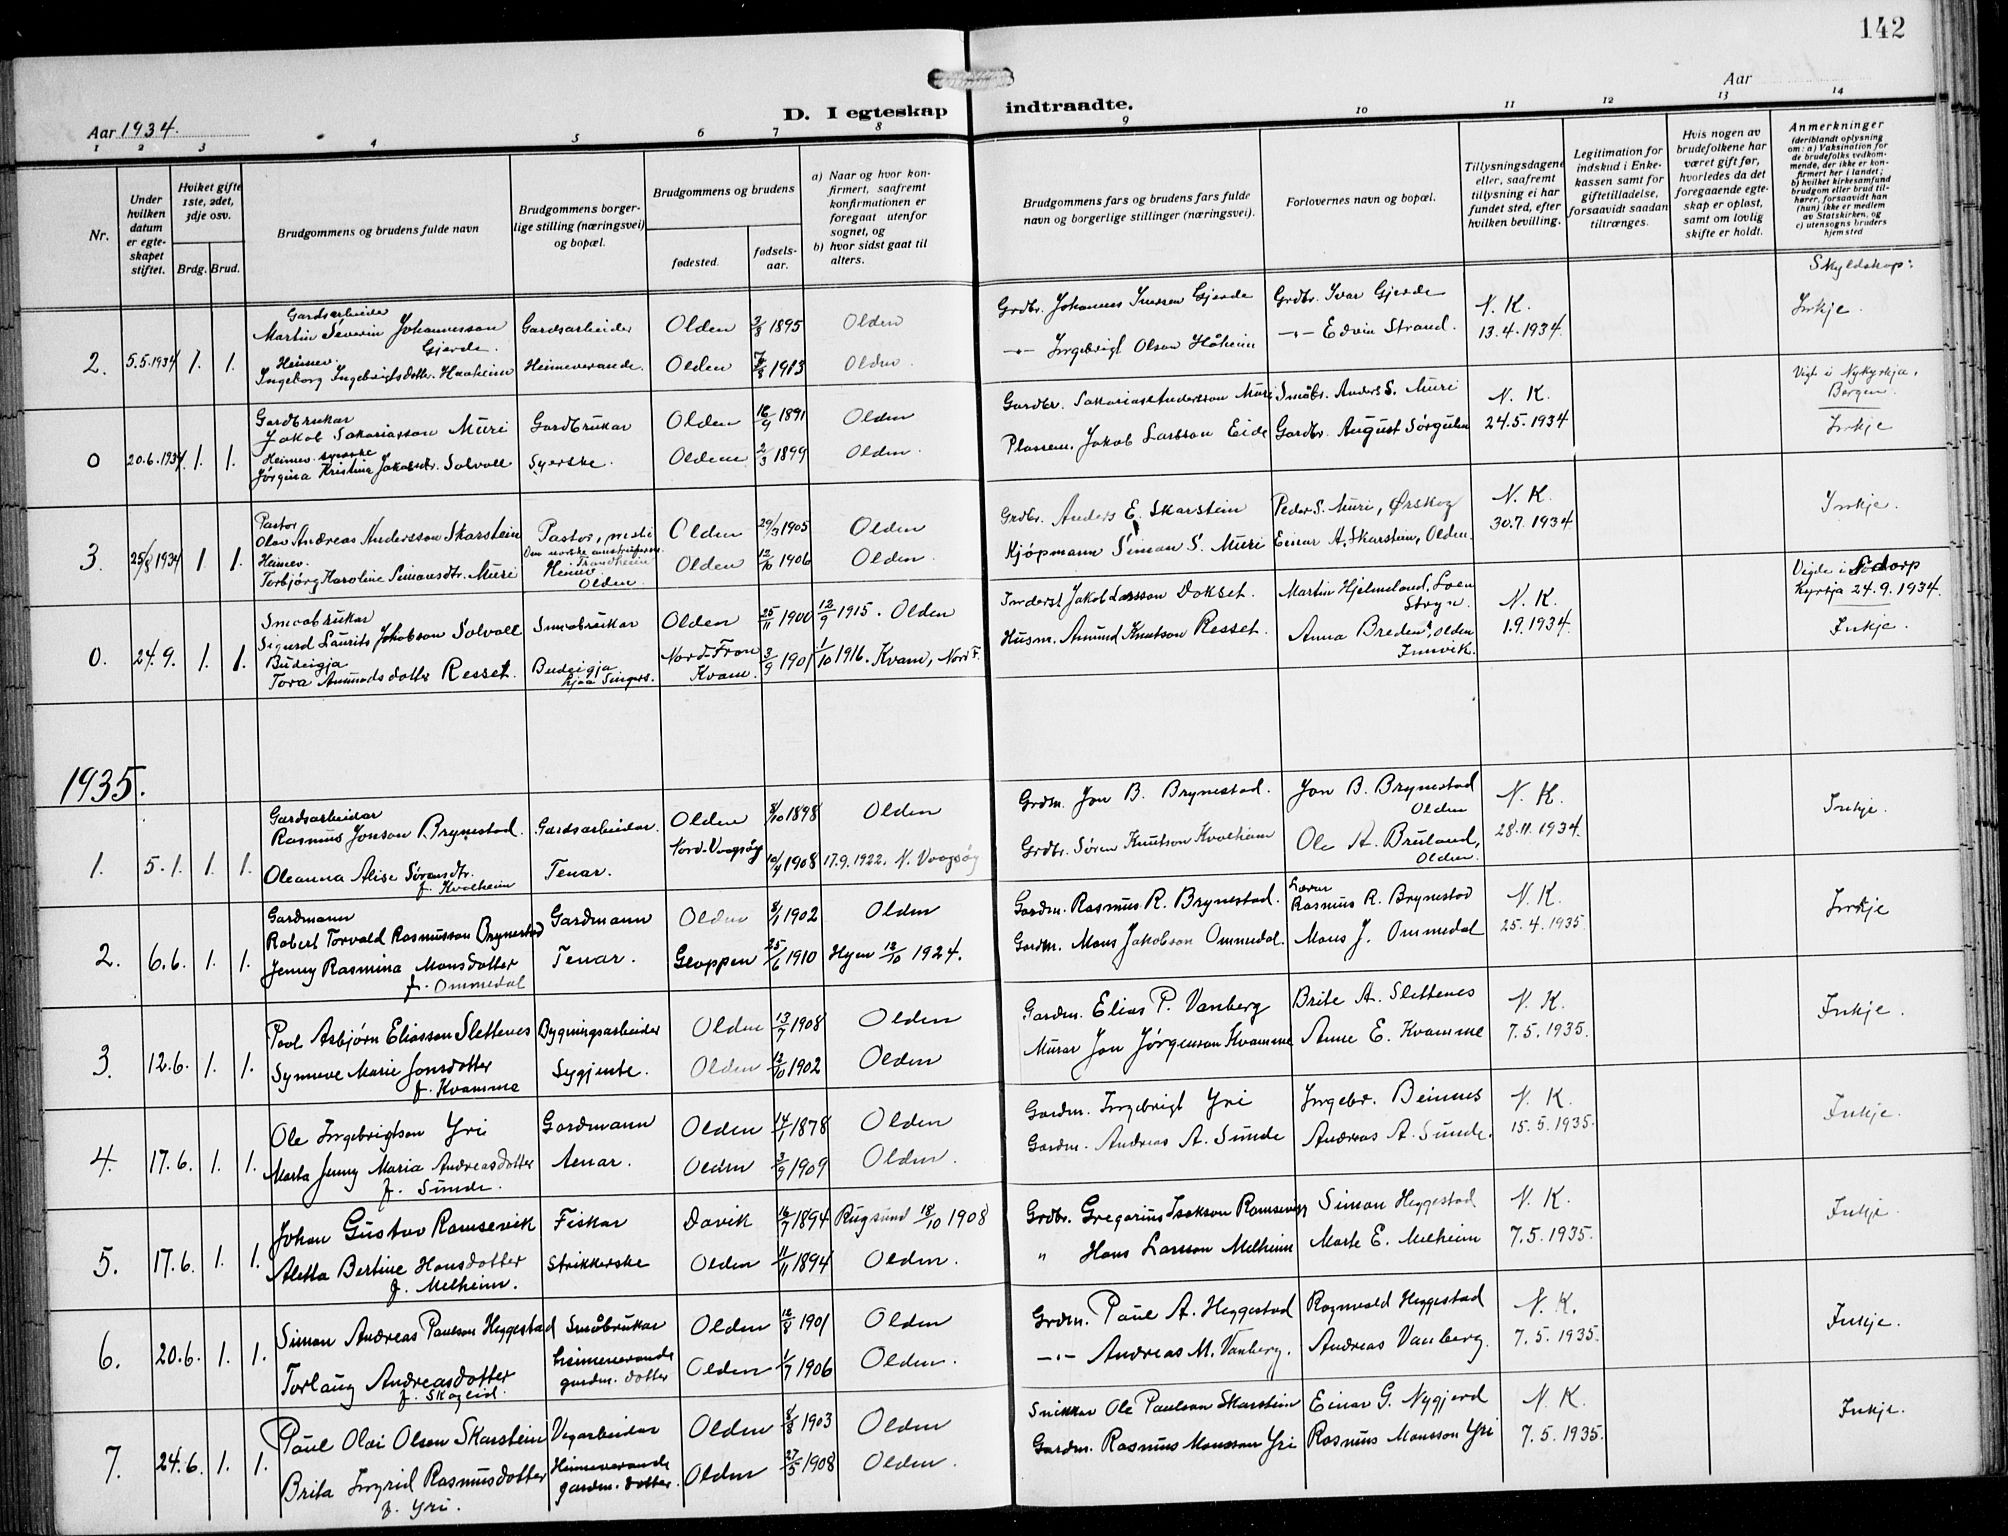 142
Aar 1934.
D. I egteskap indtraadte.
Aar
1 2 3 4 5 6 7 8 9 10 11 12 13 14
Nr.
Under hvilken datum er egteskapet stiftet.
Hviket gifte 1ste, 2det, 3dje osv.
Brdg. Brud.
Brudgommens og brudens fulde navn
Brudgommens borgerlige stilling (næringsvei) og bopæl.
Brudgommens og brudens
fødested.
fødselsaar.
a) Naar og hvor konfirmert, saafremt konfirmationen er foregaat utenfor sognet, og
b) hvor sidst gaat til alters.
Brudgommens fars og brudens fars fulde navn og borgerlige stillinger (næringsvei).
Forlovernes navn og bopæl.
Tillysningsdagene eller, saafremt tillysning ei har fundet sted, efter hvilken bevilling.
Legitimation for indskud i Enkekassen samt for giftetilladelse, forsaavidt saadan tiltrænges.
Hvis nogen av brudefolkene har været gift før, hvorledes da det foregaaende egteskap er opløst, samt om lovlig skifte er holdt.
Anmerkninger (deriblandt oplysning om: a) Vaksination for de brudefolks vedkommende, der ikke er konfirmert her i landet; b) hvilket kirkesamfund brudgom eller brud tilhører, forsaavidt han (hun) ikke er medlem av Statskirken, og c) utensogns bruders hjemsted
Skyldskap:
2. 5.5.1934 1. 1.
Gardsarbeide
Martin Severin Johannesson Gjerde. Gardsarbeider Olden 2/8 1895 Olden
Grdbr. Johannes Iversen Gjerde Grdbr. Ivar Gjerde N. K. Inkje.
Heimev.
Ingeborg Ingebrigtsdotter Haaheim Heimeverande. Olden 7/8 1913 Olden.
-"- Ingebrigt Olson Håheim -"- Edvin Strand. 13.4.1934.
0 20.6.1934 1. 1.
Gardbrukar
Jakob Sakariasson Muri Gardbrukar Olden 16/9 1891 Olden
Gardbr. Sakarias Andersson Muri Småbr. Anders S. Muri N. K. Vigde i Nykyrkja, Bergen.
Heimev. syerske
Jørgina Kristine Jakobsdr. Solvoll Syerske. Olden 2/3 1899 Olden.
Plassem. Jakob Larsson Eide Gardbr. August Sørgulen 24.5.1934 Inkje
3. 25/8 1934 1 1.
Pastor
Olav Andreas Andersson Skarstein Pastor, Olden 29/3 1905 Olden
Trondheim
Grdbr. Anders E. Skarstein Peder S. Muri, Ørskog N. K. Inkje.
Heimev.
Torbjørg Karoline Simonsdtr. Muri Heimev. Olden. Olden 12/10 1906 Olden.
Kjøpmann Simon S. Muri Einar A. Skarstein, Olden. 30.7.1934
0. 24.9. 1. 1.
Smaabrukar
Sigurd Laurits Jakobson Solvoll Smaabrukar Olden 25/11 1900 12/9 1915. Olden
Inderst Jakob Larsson Dokset. Martin Hjelmeland, Loen Stryn. N. K. Vigde i Sødorp Kyrkja 24.9.1934.
Budeigja
Tora Amundsdotter Resset. Budeigja Nord-Fron Kvam. 3/9 1901 1/10 1916. Kvam, Nord F.
Husm. Amund Knutson Resset. Anna Breden, Olden Innvik. 1.9.1934. Inkje.
1935.
1. 5.1. 1. 1.
Gardsarbeidar
Rasmus Jonson Brynestad. Gardsarbeidar. Olden 8/10 1898 Olden
Grdm. Jon B. Brynestad. Jon B. Brynestad Olden N. K. Inkje.
Oleanna Alise Sørensdtr. f. Kvalheim Tenar. Nord-Vaagsøy 10/4 1908 17.9.1922. N. Vaagsøy
Grdbr. Søren Knutson Kvalheim Ole K. Bruland, Olden. 28.11.1934.
2. 6.6. 1. 1.
Gardmann
Robert Torvald Rasmusson Brynestad Gardmann Olden 8/1 1902 Olden
Gardm. Rasmus R. Brynestad. Lærar Rasmus R. Brynestad N. K. Inkje
Jenny Rasmina Monsdotter f. Ommedal Tenar. Gloppen 25/6 1910 Hyen 12/10 1924.
Gardm. Mons Jakobson Ommedal. Mons J. Ommedal 25.4.1935.
3. 12.6. 1. 1.
Paal Asbjørn Eliasson Slettenes Bygningsarbeider Olden 13/7 1908 Olden
Gardm. Elias P. Vanberg Brite A. Slettenes N. K. Inkje.
Synneve Marie Jonsdotter f. Kvamme Sygjente. Olden 12/10 1902 Olden
Murar Jon Jørgenson Kvamme Anne E. Kvamme 7.5.1935.
4. 17.6. 1. 1.
Ole Ingebrigtson Yri Gardmann Olden 14/1 1878 Olden
Gardm. Ingebrigt Yri Ingebr. Beinnes N. K. Inkje.
Marta Jenny Maria Andreasdotter f. Sunde. Tenar. Olden 3/9 1909 Olden.
Gardm. Andreas A. Sunde Andreas A. Sunde. 15.5.1935.
5. 17.6. 1. 1.
Johan Gustav Ramsevik Fiskar Davik 16/7 1894 Rugsund 18/10 1908
Grdbr. Gregorius Isakson Ramsevik Simon Heggestad N. K. Inkje.
Aletta Bertine Hansdotter f. Melheim. Strikkerske Olden 11/11 1894 Olden.
" Hans Larsson Melheim Marte E. Melheim 7.5.1935.
6. 20.6. 1. 1.
Simon Andreas Paulson Heggestad Småbrukar Olden 12/8 1901 Olden
Grdm. Paul A. Heggestad Ragnvald Heggestad N. K. Inkje.
Torlaug Andreasdotter f. Skogeid. heimeverande gardm. dotter Olden 1/7 1906 Olden.
-"- Andreas M. Vanberg. Andreas Vanberg. 7.5.1935.
7. 24.6. 1. 1.
Paul Olai Olsen Skarstein Vegarbeidar Olden 8/8 1903 Olden
Snikkar Ole Paulson Skarstein Einar G. Nygjerd N. K. Inkje.
Brita Ingrid Rasmusdotter f. Yri. Heimeverande gardm. dotter. Olden 27/5 1908 Olden.
Gardm. Rasmus Monsson Yri Rasmus Monsson Yri 7.5.1935.